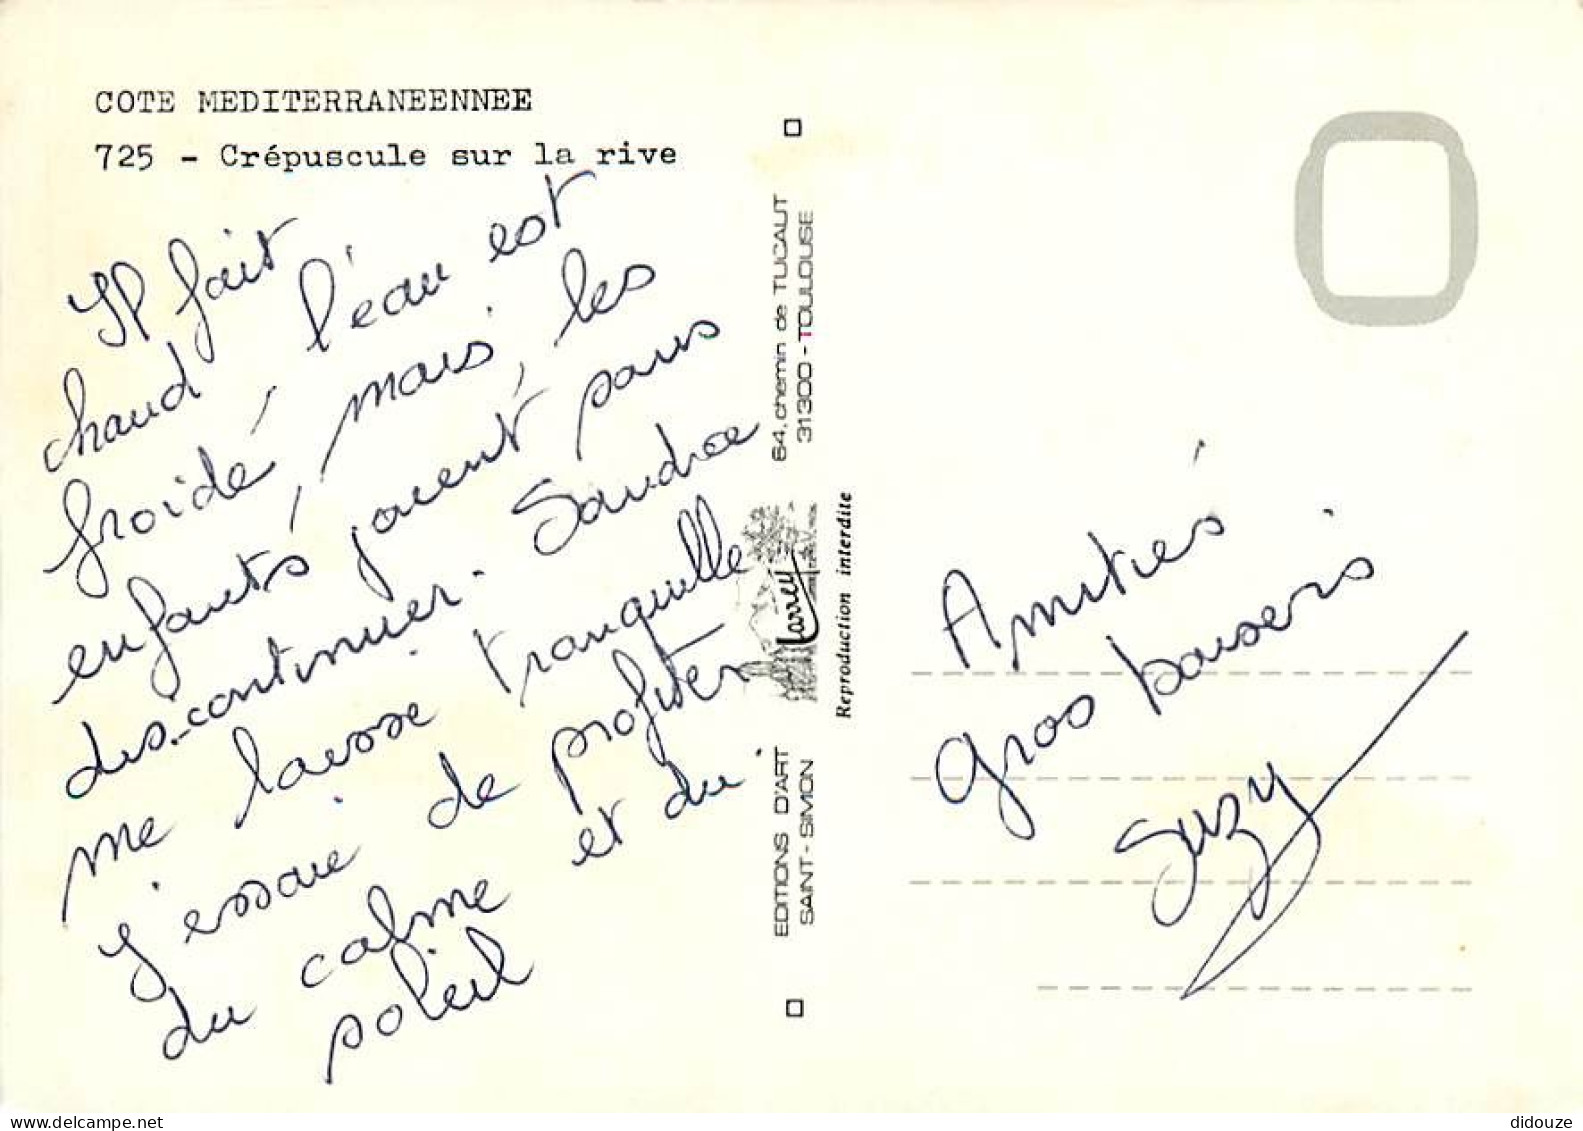 COTE MEDITERRANEENNEE
725 - Crépuscule sur la rive
Il fait
chaud l'eau est
froide, mais, les
enfants jouent sans
discontinuer. Sandra
me laisse tranquille
j'essaie de profiter
du calme et du
soleil
64, chemin de TUCAUT
31300 - TOULOUSE
Larrey
Reproduction interdite
EDITIONS D'ART
SAINT-SIMON
Amitiés
Gros baisers
Suzy
delcampe.net
didouze